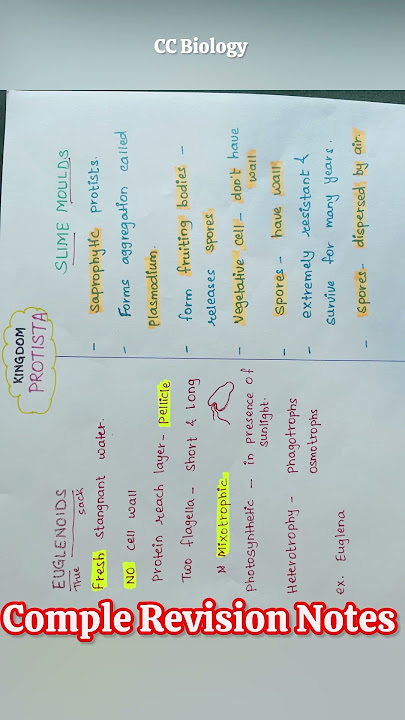 CC Biology
KINGDOM
PROTISTA
EUGLENOIDS
True sack
Fresh stangnant water.
NO cell wall
Protein reach layer- Pellicle
Two flagella- short & long
Mixotrophic
Photosynthetic - in presence of
sunlight.
Heterotrophy - phagotrophs
osmotrophs
ex. Euglena
SLIME MOULDS
- saprophytic protists.
- Forms aggregation called
Plasmodium.
- form fruiting bodies -
releases spores
- Vegelative cell - don't have
wall
- spores - have wall
- extremely resistant &
survive for many years.
- spores- dispersed by air.
Comple Revision Notes